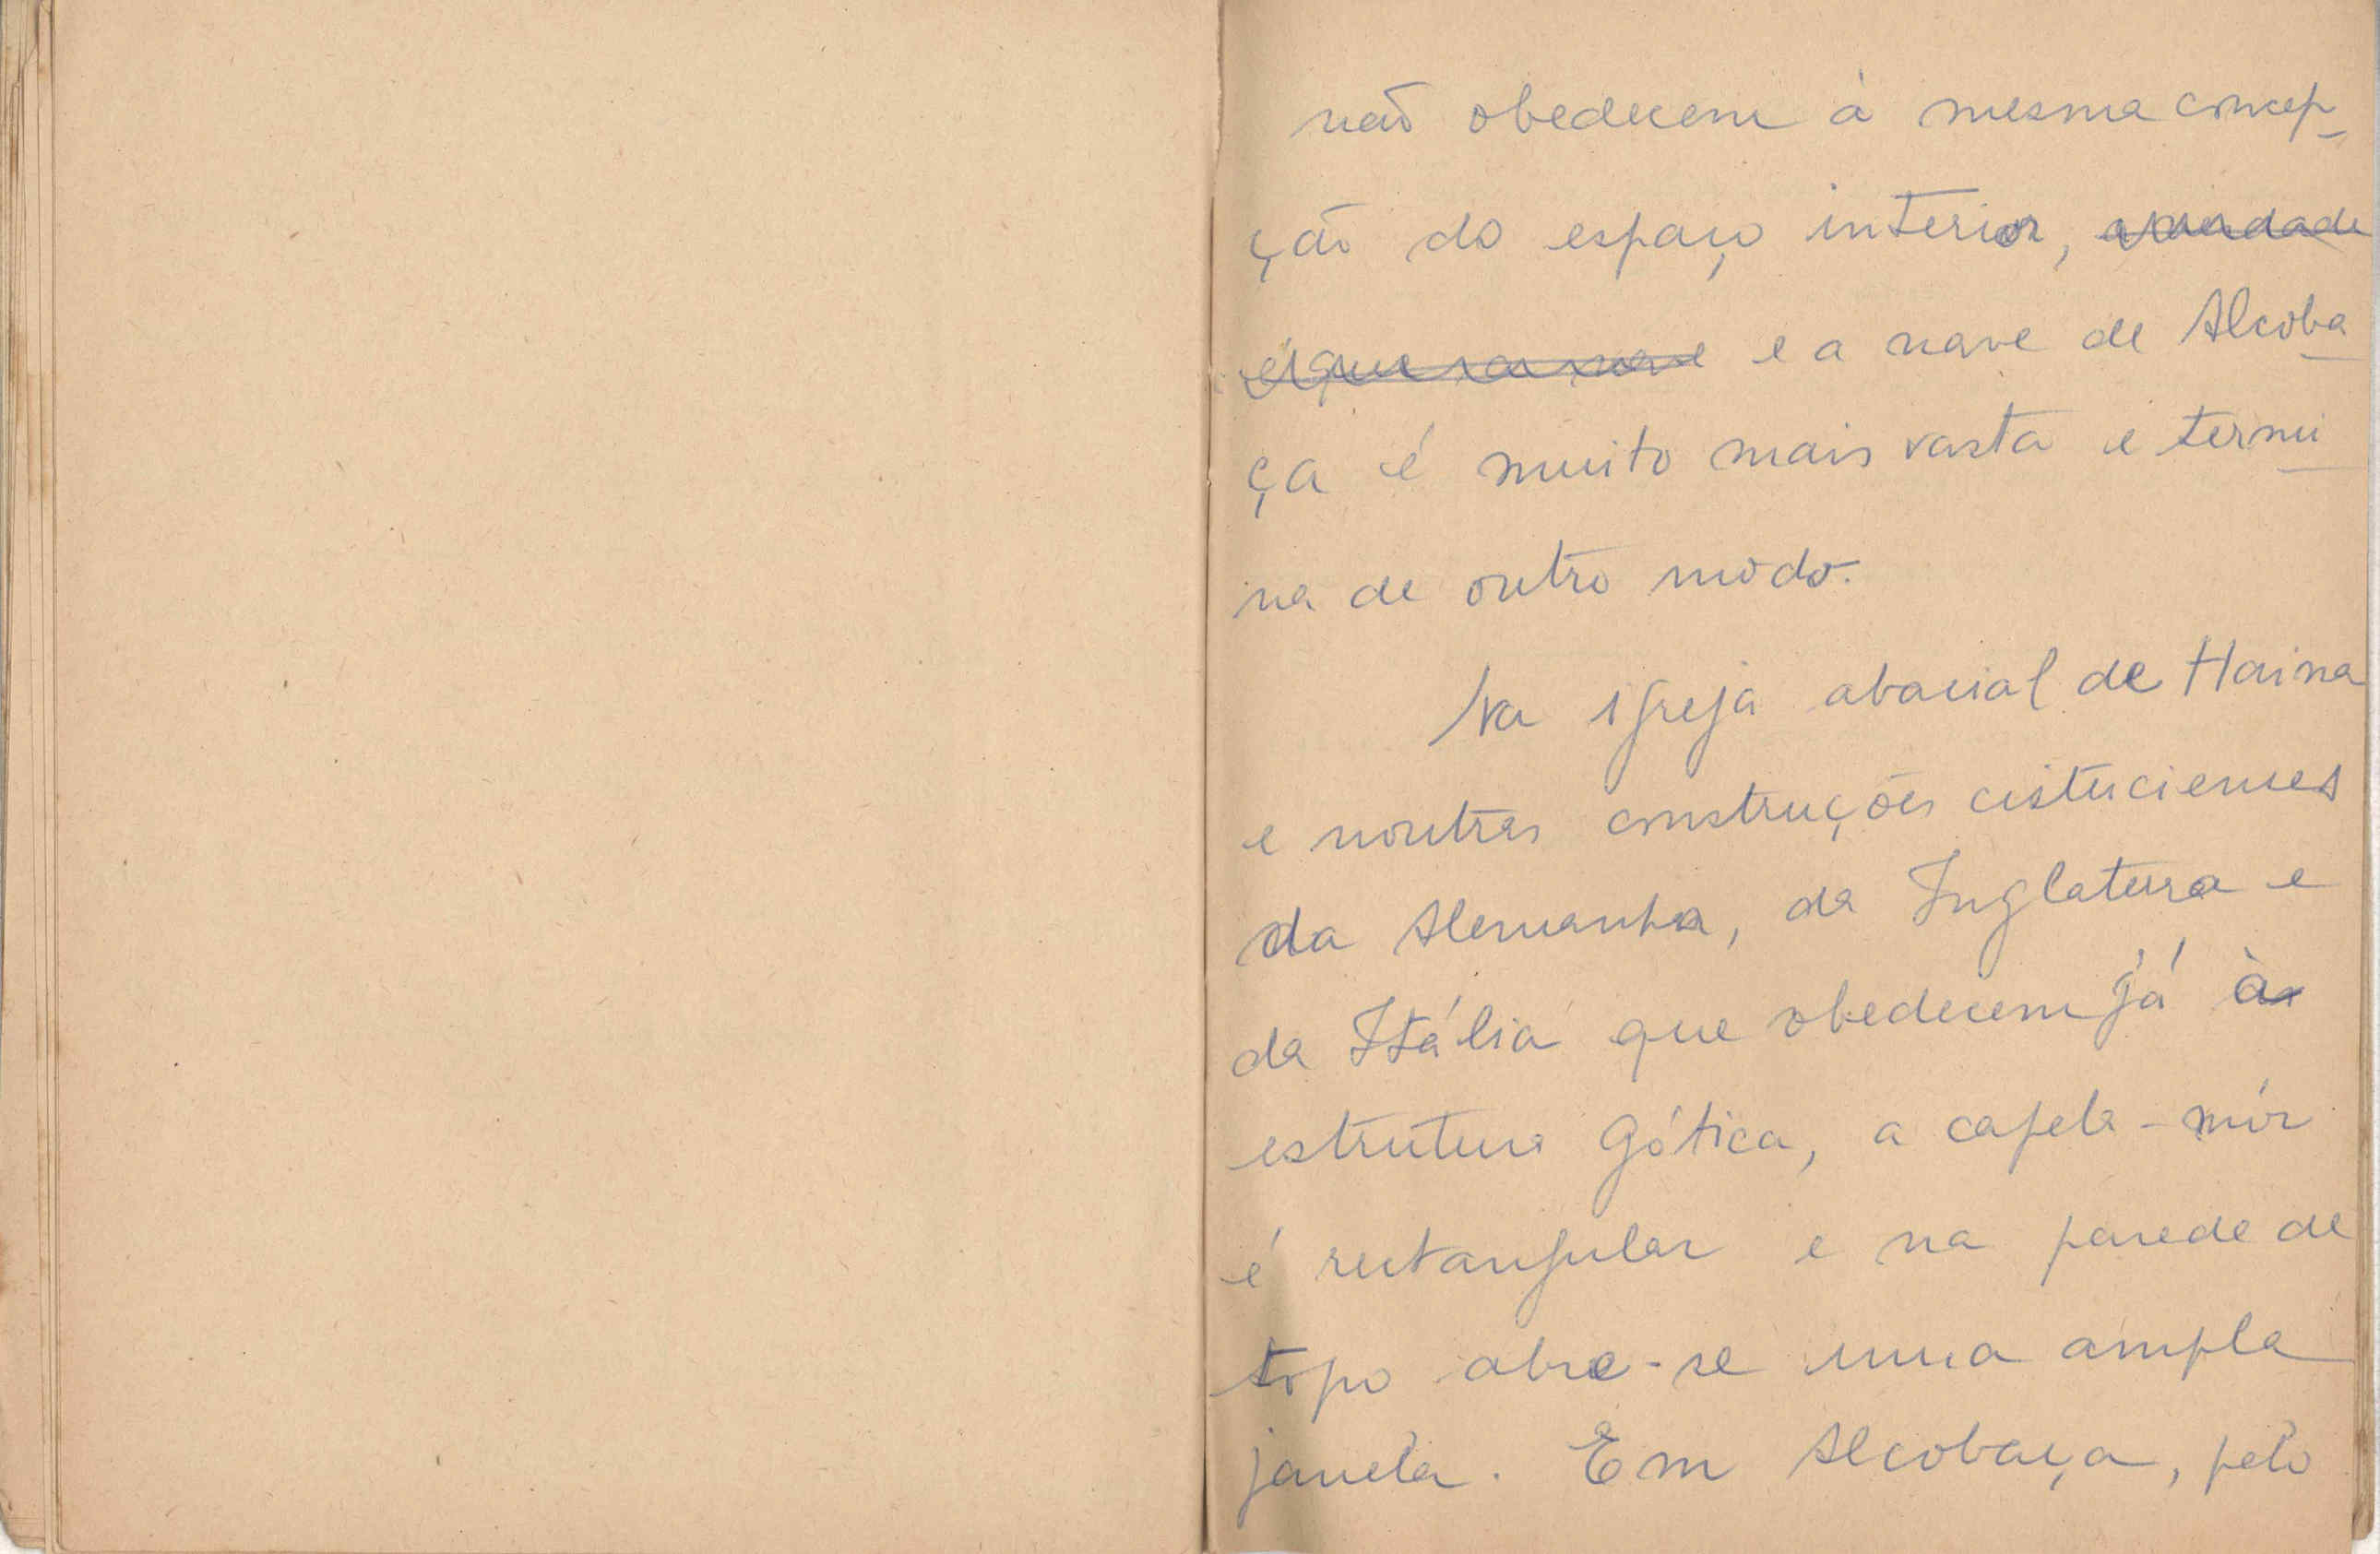 não obedecem à mesma concep-
ção do espaço interior, a verdade
é que a nave e a nave de Alcoba-
ça é muito mais vasta e termi-
na de outro modo.
Na igreja abacial de Haina
e noutras construções cistercienses
da Alemanha, da Inglaterra e
da Itália que obedecem já à
estrutura gótica, a capela-mór
é rectangular e na parede de
topo abre-se uma ampla
janela. Em Alcobaça, pelo